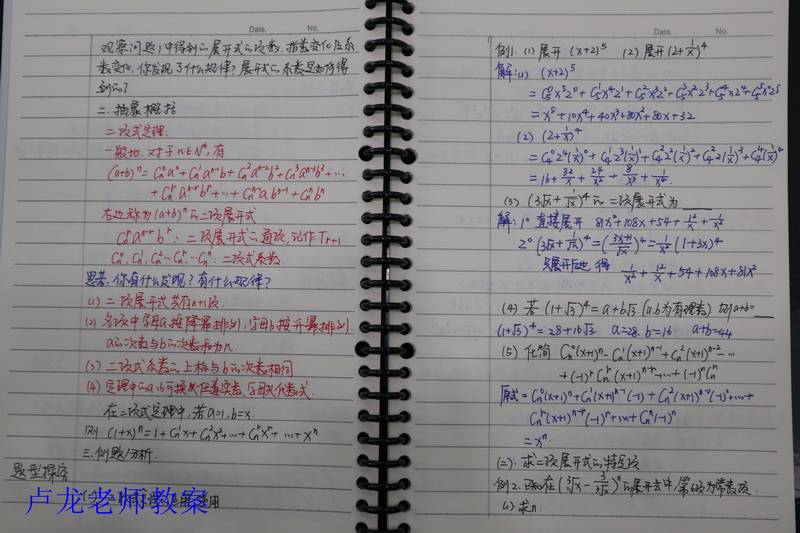 Date.    No.
观察问题1中得到的展开式的次数、指数变化及系
数变化,你发现了什么规律?展开式的系数是如何得
到的?
二、抽象概括
二项式定理:
一般地,对于n∈N*,有
(a+b)ⁿ = Cn⁰aⁿ + Cn¹aⁿ⁻¹b + Cn²aⁿ⁻²b² + Cn³aⁿ⁻³b³ + …
+ Cnʳaⁿ⁻ʳbʳ + … + Cnⁿ⁻¹abⁿ⁻¹ + Cnⁿbⁿ
右边称为(a+b)ⁿ的二项展开式
Cnʳaⁿ⁻ʳbʳ:二项展开式的通项,记作Tr+1
Cn⁰, Cn¹, Cn²…Cnʳ…Cnⁿ:二项式系数.
思考:你有什么发现?有什么规律?
(1) 二项展开式共有n+1项
(2) 各项中字母a按降幂排列,字母b按升幂排列,
a的次数与b的次数和为n.
(3) 二项式系数的上标与b的次数相同
(4) 定理中的a,b可换成任意实数,字母或代数式.
在二项式定理中,若a=1, b=x.
则 (1+x)ⁿ = 1 + Cn¹x + Cn²x² + … + Cnʳxʳ + … + xⁿ
三.例题分析.
题型探究
卢龙老师教案
用
Date.    No.
例1. (1) 展开 (x+2)⁵  (2) 展开(2+1/x)⁴
解:(1) (x+2)⁵
= C₅⁰x⁵2⁰ + C₅¹x⁴2¹ + C₅²x³2² + C₅³x²2³ + C₅⁴x2⁴ + C₅⁵x⁰2⁵
= x⁵ + 10x⁴ + 40x³ + 80x² + 80x + 32
(2) (2+1/x)⁴
= C₄⁰2⁴(1/x)⁰ + C₄¹2³(1/x)¹ + C₄²2²(1/x)² + C₄³2(1/x)³ + C₄⁴(1/x)⁴
= 16 + 32/x + 24/x² + 8/x³ + 1/x⁴.
(3) (3√x + 1/√x)⁴的二项展开式为____
解:1° 直接展开 81x² + 108x + 54 + 12/x + 1/x²
2° (3√x + 1/√x)⁴ = ((3x+1)/√x)⁴ = 1/x²(1+3x)⁴
展开后,得 1/x² + 12/x + 54 + 108x + 81x²
(4) 若 (1+√3)⁴ = a+b√3. (a,b为有理数) 则a+b=____
(1+√3)⁴ = 28+16√3. a=28. b=16 a+b=44
(5) 化简 Cn⁰(x+1)ⁿ - Cn¹(x+1)ⁿ⁻¹ + Cn²(x+1)ⁿ⁻² - …
+ (-1)ʳCnʳ(x+1)ⁿ⁻ʳ + … + (-1)ⁿCnⁿ
原式 = Cn⁰(x+1)ⁿ + Cn¹(x+1)ⁿ⁻¹(-1) + Cn²(x+1)ⁿ⁻²(-1)² + … +
Cnʳ(x+1)ⁿ⁻ʳ(-1)ʳ + … + Cnⁿ(-1)ⁿ
= xⁿ.
(二). 求二项展开式的特定项
例2. 已知在 (∛x - 3/∛x)ⁿ的展开式中,第6项为常数项.
(1) 求n.